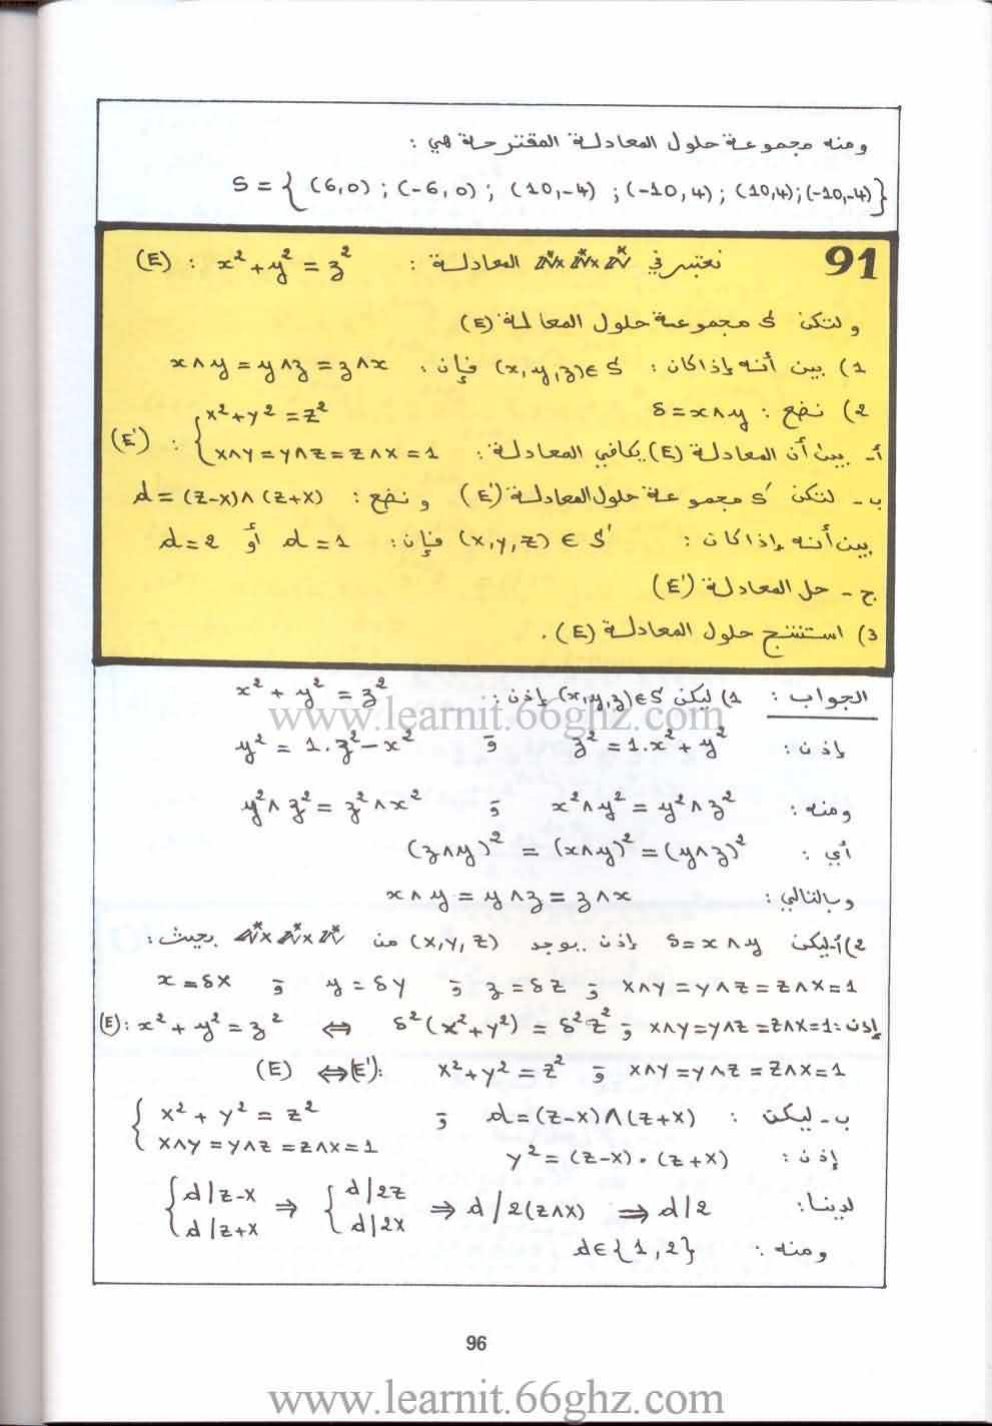 ومنه مجموعة حلول المعادلة المقترحة هي :
S = { (6,0) ; (-6,0) ; (10,-4) ; (-10,4) ; (10,4) ; (-10,-4) }
91 نعتبر في ℕ*×ℕ*×ℕ* المعادلة : (E) : x² + y² = z²
ولتكن S مجموعة حلول المعادلة (E)
1) بين أنه إذا كان : (x,y,z) ∈ S فإن : x∧y = y∧z = z∧x
2) نضع : δ = x∧y
أ- بين أن المعادلة (E) يكافي المعادلة : (E') : { X²+Y² = Z²
X∧Y = Y∧Z = Z∧X = 1
ب - لتكن S' مجموعة حلول المعادلة (E') و نضع : d = (Z-X)∧(Z+X)
بين أنه إذا كان : (X,Y,Z) ∈ S' فإن : d=1 أو d=2
ج - حل المعادلة (E')
3) استنتج حلول المعادلة (E) .
الجواب : 1) ليكن (x,y,z)∈S إذن : x² + y² = z²
إذن : z² = 1.x² + y² و y² = 1.z² - x²
ومنه : x²∧y² = y²∧z² و y²∧z² = z²∧x²
أي : (z∧y)² = (x∧y)² = (y∧z)²
وبالتالي : x∧y = y∧z = z∧x
2) أ- ليكن δ = x∧y إذن يوجد (X,Y,Z) من ℕ*×ℕ*×ℕ* بحيث :
x = δX و y = δY و z = δZ و X∧Y = Y∧Z = Z∧X = 1
إذن : (E) : x² + y² = z² ⇔ δ²(X²+Y²) = δ²Z² و X∧Y = Y∧Z = Z∧X = 1
(E) ⇔ (E') : X²+Y² = Z² و X∧Y = Y∧Z = Z∧X = 1
ب - ليكن : d = (Z-X)∧(Z+X) و { X² + Y² = Z²
X∧Y = Y∧Z = Z∧X = 1
إذن : Y² = (Z-X).(Z+X)
لدينا : { d/Z-X ⇒ { d/2Z ⇒ d/2(Z∧X) ⇒ d/2
d/Z+X d/2X
ومنه : d ∈ {1,2}
96
www.learnit.66ghz.com
www.learnit.66ghz.com